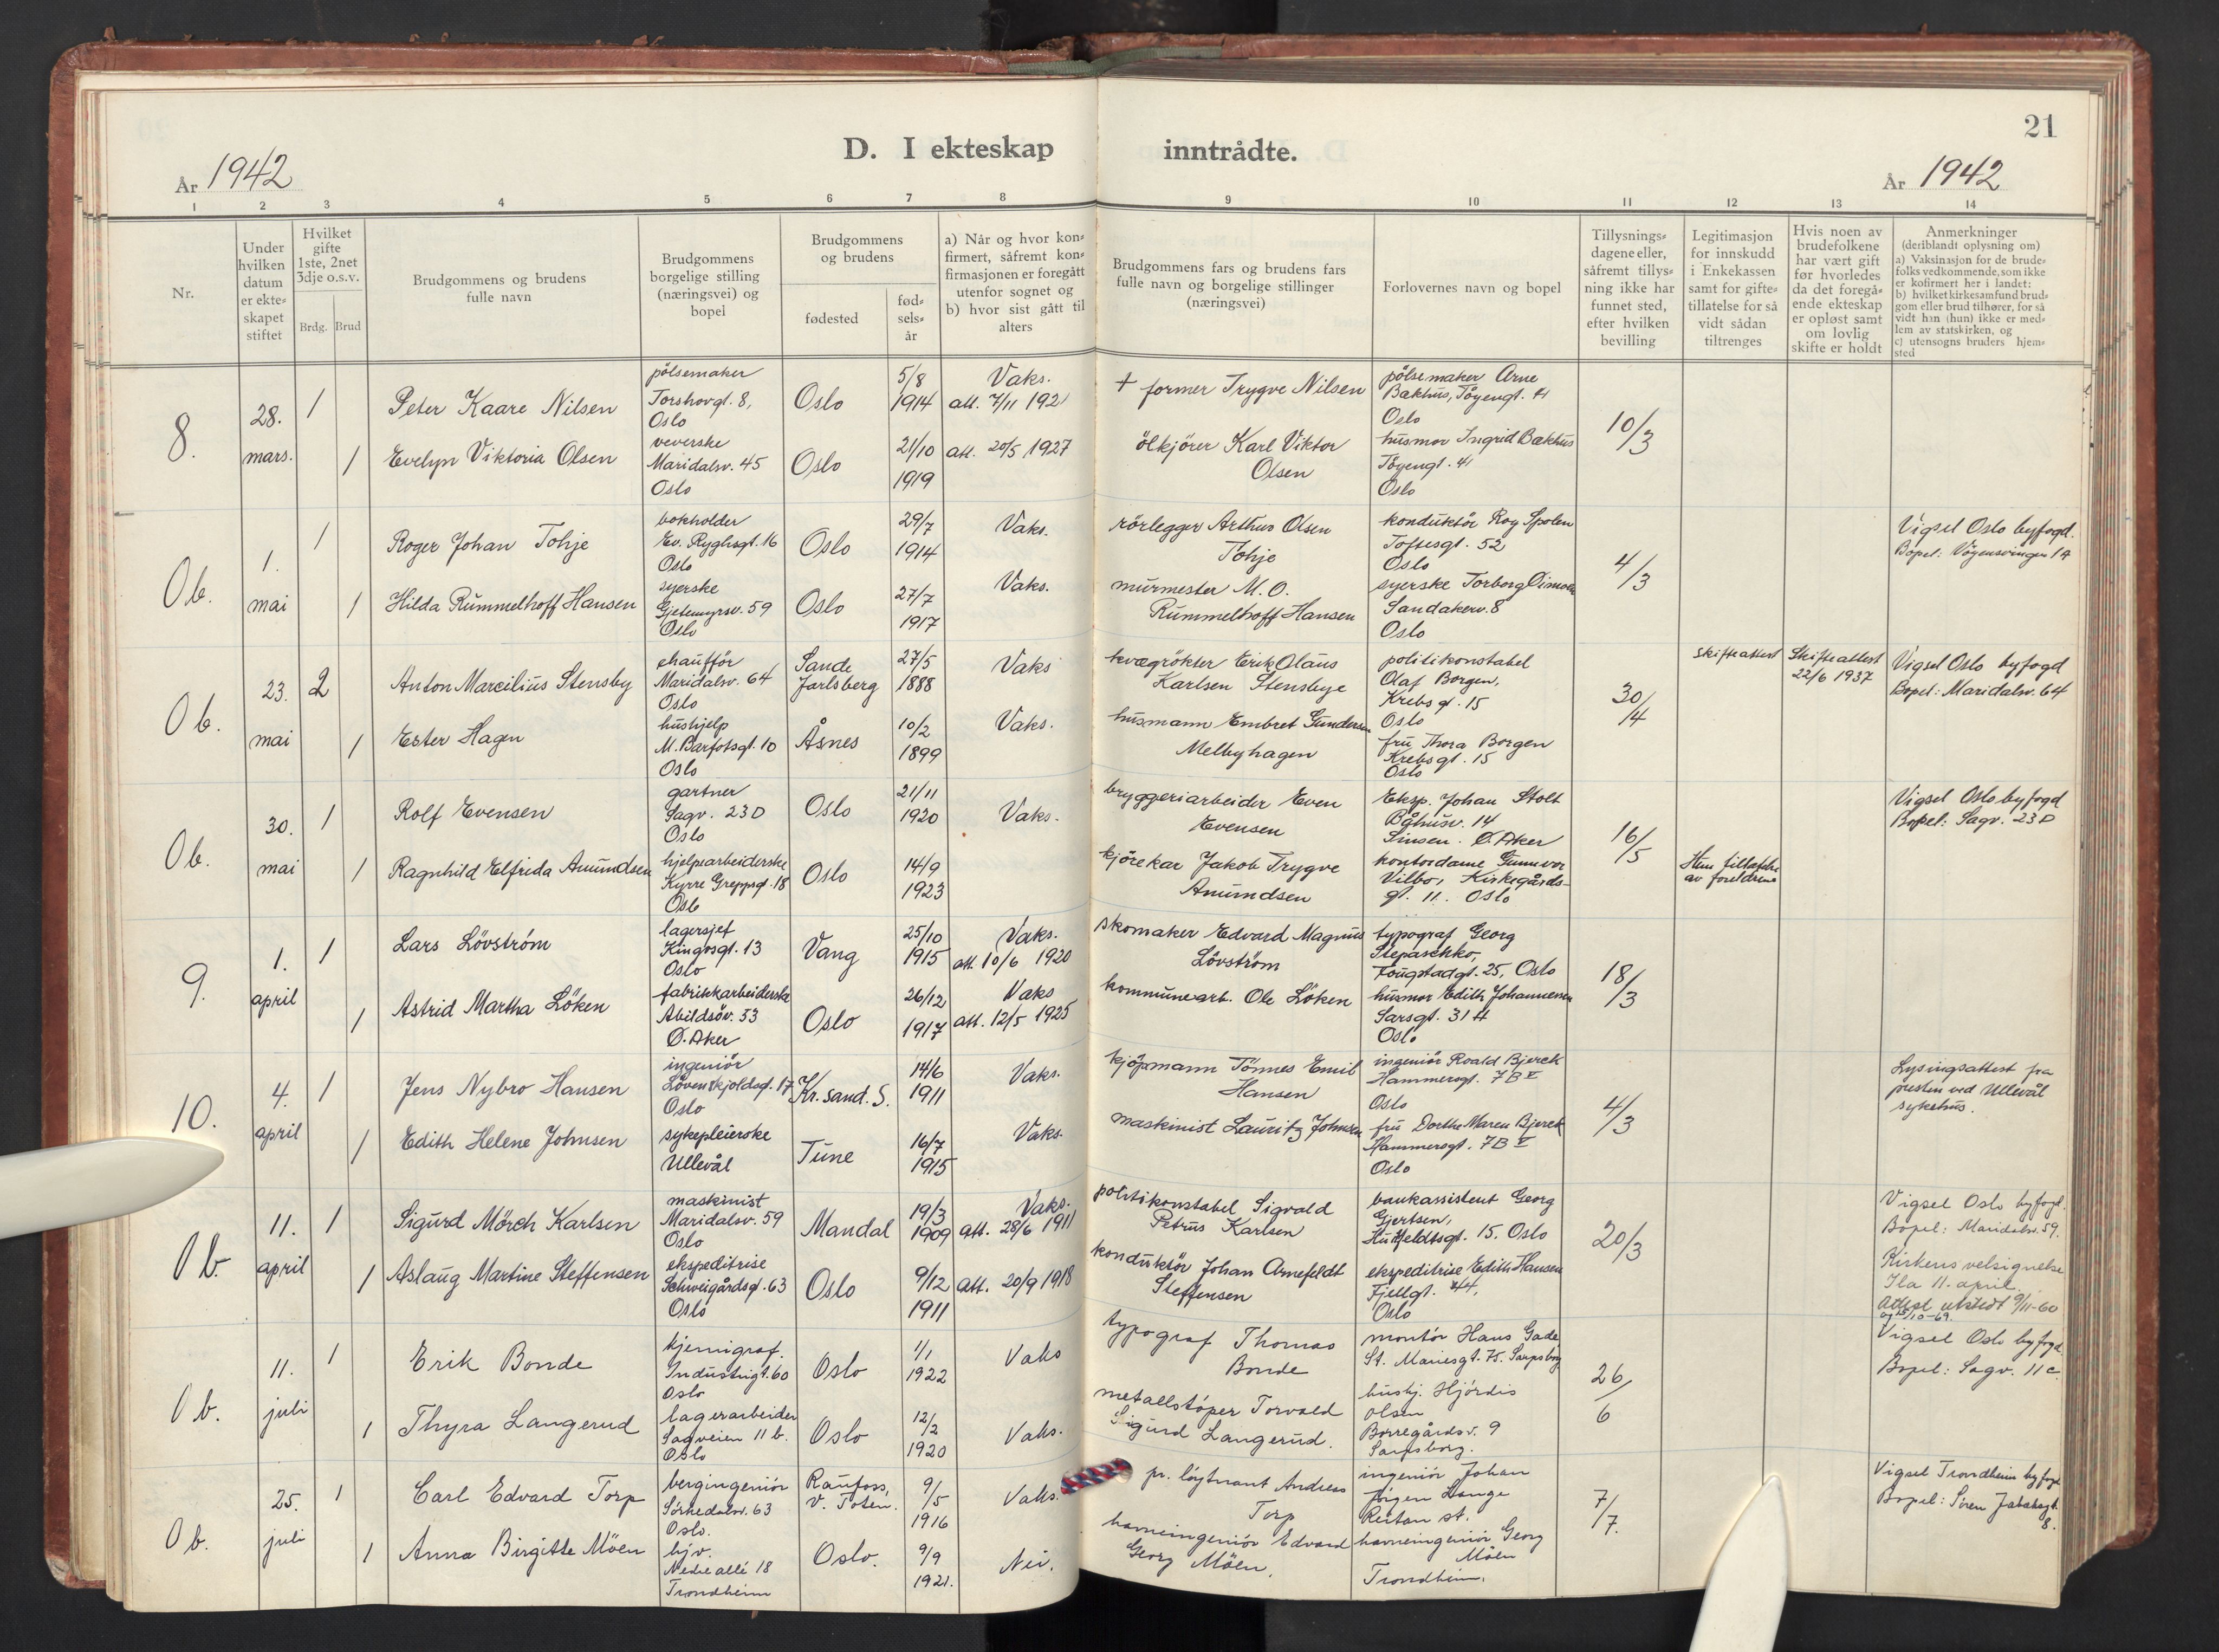 21
D. I ekteskap inntrådte.
År 1942
År 1942
1 2 3 4 5 6 7 8 9 10 11 12 13 14
Nr.
Under
hvilken
datum
er ekte-
skapet
stiftet
Hvilket
gifte
1ste, 2net
3dje o.s.v.
Brdg. Brud
Brudgommens og brudens
fulle navn
Brudgommens
borgelige stilling
(næringsvei) og
bopel
Brudgommens
og brudens
fødested
fød-
sels-
år
a) Når og hvor kon-
firmert, såfremt kon-
firmasjonen er foregått
utenfor sognet og
b) hvor sist gått til
alters
Brudgommens fars og brudens fars
fulle navn og borgelige stillinger
(næringsvei)
Forlovernes navn og bopel
Tillysnings-
dagene eller,
såfremt tillys-
ning ikke har
funnet sted,
efter hvilken
bevilling
Legitimasjon
for innskudd
i Enkekassen
samt for gifte-
tillatelse for så
vidt sådan
tiltrenges
Hvis noen av
brudefolkene
har vært gift
før hvorledes
da det foregå-
ende ekteskap
er opløst samt
om lovlig
skifte er holdt
Anmerkninger
(deriblandt oplysning om)
a) Vaksinasjon for de brude-
folks vedkommende, som ikke
er kofirmert her i landet;
b) hvilket kirkesamfund brud-
gom eller brud tilhører, for så
vidt han (hun) ikke er med-
lem av statskirken, og
c) utensogns bruders hjem-
sted
8.
28.
mars.
1
Peter Kaare Nilsen
pölsemaker
Torshovgt. 8,
Oslo
Oslo
5/8
1914
Vaks.
att. 7/11 1921
† former Trygve Nilsen
pölsemaker Arne
Bakhus, Töyengt. 41
Oslo
10/3
1
Evelyn Viktoria Olsen
veverske
Maridalsv. 45
Oslo
Oslo
21/10
1919
att. 20/5 1927
ölkjörer Karl Viktor
Olsen
husmor Ingrid Bakhus
Töyengt. 41
Oslo
Ob.
1.
mai
1
Roger Johan Tohje
bokholder
Ev. Ryghsgt. 16
Oslo
Oslo
29/7
1914
Vaks.
rörlegger Arthus Olsen
Tohje
konduktör Roy Spolen
Toftesgt. 52
Oslo
4/3
Vigsel Oslo byfogd.
Bopel: Vöyensvingen 14
1
Hilda Rummelhoff Hansen
syerske
Gjetemyrsv. 59
Oslo
Oslo
27/7
1917
Vaks.
murmester M. O.
Rummelhoff Hansen
syerske Torborg
Sandakerv. 8
Oslo
Ob.
23.
mai
2
Anton Marcilius Stensby
chaufför
Maridalsv. 64
Oslo
Sande
Jarlsberg
27/5
1888
Vaks
kvægrökter Erik Olaus
Karlsen Stensbye
politikonstabel
Olaf Borgen,
Krebsgt. 15
Oslo
30/4
Skifteattest
Skifteattest
22/6 1937
Vigsel Oslo byfogd
Bopel: Maridalsv. 64
1
Ester Hagen
hushjelp
M. Barfotsgt. 10
Oslo
Åsnes
10/2
1899
Vaks.
husmann Embret Gundersen
Melbyhagen
fru Thora Borgen
Krebsgt. 15
Oslo
Ob.
30.
mai
1
Rolf Evensen
gartner
Sagv. 23 D
Oslo
Oslo
21/11
1920
Vaks.
bryggeriarbeider Even
Evensen
Eksp. Johan Stolt
Båhusv. 14
Sinsen. Ö. Aker
16/5
Vigsel Oslo byfogd
Bopel: Sagv. 23 D
1
Ragnhild Elfrida Amundsen
hjelpearbeiderske
Kyrre Greppsgt. 18
Oslo
Oslo
14/9
1923
kjörekar Jakob Trygve
Amundsen
kontordame Gunnvor
Vilbo, Kirkegårds-
gt. 11. Oslo
tillatelse
av foreldrene
9.
1.
april
1
Lars Lövström
lagersjef
Kingosgt. 13
Oslo
Vang
25/10
1915
Vaks.
att. 10/6 1920
skomaker Edvard Magnus
Lövström
typograf Georg
Stepaschko,
Fougstadgt. 25, Oslo
18/3
1
Astrid Martha Löken
fabrikkarbeiderske
Abildsöv. 33
Ö. Aker
Oslo
26/12
1917
Vaks
att. 12/5 1925
kommunearb. Ole Löken
husmor Edith Johannesen
Sarsgt. 31 H
Oslo
10.
4.
april
1
Jens Nybro Hansen
ingeniör
Lövenskjoldsgt. 17
Oslo
Kr.sand. S.
14/6
1911
Vaks.
kjöpmann Tönnes Emil
Hansen
ingeniör Roald Bjerck
Hammersgt. 7 B V
Oslo
4/3
Lysingsattest fra
presten ved Ullevål
sykehus.
1
Edith Helene Johnsen
sykepleierske
Ullevål
Tune
16/7
1915
Vaks.
maskinist Lauritz Johnsen
fru Dorthe Maren Bjerck
Hammersgt. 7 B V
Oslo
Ob.
11.
april
1
Sigurd Mörch Karlsen
maskinist
Maridalsv. 59
Oslo
Mandal
19/3
1909
Vaks.
att. 28/6 1911
politikonstabel Sigvald
Petrus Karlsen
bankassistent Georg
Gjertsen,
Huitfeldtsgt. 15. Oslo
20/3
Vigsel Oslo byfogd.
Bopel: Maridalsv. 59.
Kirkens velsignelse
Ila 11. april.
Attest utstedt 9/11-60
1
Aslaug Martine Steffensen
ekspeditrise
Schweigårdsgt. 63
Oslo
Oslo
9/12
1911
att. 20/9 1918
konduktör Johan Arnefeldt
Steffensen
ekspeditrise Edith Hansen
Fjellgt. 44,
Oslo
Ob.
11.
juli
1
Erik Bonde
kjemigraf.
Industrigt. 60
Oslo
Oslo
1/1
1922
Vaks
typograf Thomas
Bonde
montör Hans Gade
St. Mariesgt. 75. Sarpsborg
26/6
Vigsel Oslo byfogd.
Bopel: Sagv. 11 c
1
Thyra Langerud
lagerarbeider
Sagveien 11 b.
Oslo
Oslo
12/2
1920
Vaks.
metallstöper Torvald
Sigurd Langerud.
hushj. Hjördis
Olsen
Borregårdsv. 9
Sarpsborg.
Ob.
25.
juli
1
Carl Edvard Torp
bergingeniör
Sörkedalsv. 63
Oslo.
Raufoss,
V. Toten.
9/5
1916
Vaks.
pr. löytnant Andreas
Torp
ingeniör Johan
Jörgen Lange
Reitan st.
7/7.
Vigsel Trondheim byfogd
Bopel: Sören Jaabæksgt.
8.
1
Anna Birgitte Möen
hjv.
Nedre allé 18
Trondheim
Oslo.
9/9
1921.
Nei.
havneingeniör Edvard
Georg Möen.
havneingeniör Georg
Möen
Trondheim.